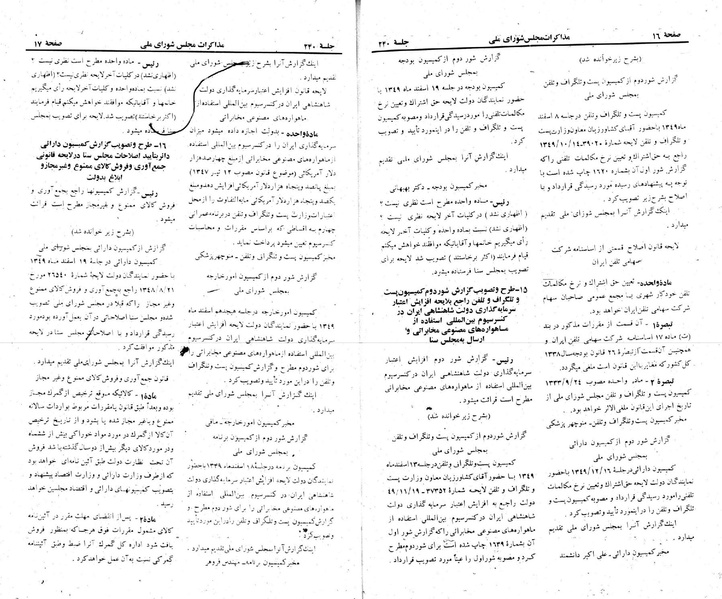 صفحهٔ ۱۶
مذاکرات مجلس شورای ملی
جلسهٔ ۲۴۰
(بشرح زیر خوانده شد)
گزارش شور دوم از کمیسیون پست و تلگراف و تلفن
بمجلس شورای ملی
کمیسیون پست و تلگراف و تلفن در جلسه ۸ اسفند
ماه ۱۳۴۹ با حضور آقای کشاورزیان معاون وزارت پست
و تلگراف و تلفن لایحه شمارهٔ ۱۴۰۳۹۲۰-۱۳۴۹/۱۰/
راجع به حق اشتراک و تعیین نرخ مکالمات تلفنی را که
گزارش شور اول آن بشمارهٔ ۱۶۲۰ چاپ شده است با
توجه به پیشنهادهای رسیده مورد رسیدگی قرارداد و با
اصلاح بشرح زیر تصویب کرد.
اینک گزارش آنرا بمجلس شورای ملی تقدیم
میدارد.
لایحه قانون اصلاح قسمتی از اساسنامه شرکت
سهامی تلفن ایران
ماده واحده- تعیین حق اشتراک و نرخ مکالمات
تلفن خودکار شهری با مجمع عمومی صاحبان سهام
شرکت سهامی تلفن ایران خواهد بود.
تبصره ۱- آن قسمت از مقررات مذکور در بند
(ت) ماده ۱۷ اساسنامه شرکت سهامی تلفن ایران و
همچنین آن قسمت از تبصرهٔ ۲۶ قانون بودجه سال ۱۳۳۸
کل کشور که مغایر با این قانون است ملغی میگردد.
تبصره ۲- ماده واحده مصوب ۱۳۳۳/۹/۲۴
کمیسیون پست و تلگراف و تلفن مجلس شورای ملی از
تاریخ اجرای این قانون ملغی الاثر خواهد بود.
مخبر کمیسیون پست و تلگراف و تلفن- منوچهر پزشکی
گزارش شور دوم از کمیسیون دارائی
بمجلس شورای ملی
کمیسیون دارائی در جلسهٔ ۱۳۴۹/۱۲/۱۶ با حضور
نمایندگان دولت لایحه حق اشتراک و تعیین نرخ مکالمات
تلفنی را مورد رسیدگی قرارداد و مصوبه کمیسیون پست
و تلگراف و تلفن را در اینمورد تأیید و تصویب کرد.
اینک گزارش آنرا بمجلس شورای ملی تقدیم
میدارد.
مخبر کمیسیون دارائی- علی اکبر دانشمند
گزارش شور دوم از کمیسیون بودجه
بمجلس شورای ملی
کمیسیون بودجه در جلسه ۱۹ اسفند ماه ۱۳۴۹
با حضور نمایندگان دولت لایحهٔ حق اشتراک و تعیین نرخ
مکالمات تلفنی را مورد رسیدگی قرارداد و مصوبه کمیسیون
پست و تلگراف و تلفن را در اینمورد تأیید و تصویب
کرد.
اینک گزارش آنرا بمجلس شورای ملی تقدیم
میدارد.
مخبر کمیسیون بودجه- دکتر بهبهانی
رئیس- ماده واحده مطرح است نظری نیست؟
(اظهاری نشد) در کلیات آخر لایحه نظری نیست؟
(اظهاری نشد) نسبت بماده واحده و کلیات آخر لایحه
رأی میگیریم خانمها و آقایانیکه موافقند خواهش میکنم
قیام فرمایند (اکثر برخاستند) تصویب شد لایحه برای
تصویب بمجلس سنا فرستاده میشود.
۱۵- طرح و تصویب گزارش شور دوم کمیسیون پست
و تلگراف و تلفن راجع بلایحه افزایش اعتبار
سرمایه گذاری دولت شاهنشاهی ایران در
کنسرسیوم بین المللی استفاده از
ماهواره های مصنوعی مخابراتی و
ارسال بمجلس سنا
رئیس- گزارش شور دوم افزایش اعتبار
سرمایه گذاری دولت شاهنشاهی ایران در کنسرسیوم
بین المللی استفاده از ماهواره های مصنوعی مخابراتی
مطرح است قرائت میشود.
(بشرح زیر خوانده شد)
گزارش شور دوم از کمیسیون پست و تلگراف و تلفن
بمجلس شورای ملی
کمیسیون پست و تلگراف و تلفن در جلسه ۱۳ اسفند ماه
۱۳۴۹ با حضور آقای کشاورزیان معاون وزارت پست
و تلگراف و تلفن لایحه شمارهٔ ۳۷۳۵۲-۴۹/۱۱/۱۹
دولت راجع به افزایش اعتبار سرمایه گذاری دولت
شاهنشاهی ایران در کنسرسیوم بین المللی استفاده از
ماهواره های مصنوعی مخابراتی را که گزارش شور اول
آن بشمارهٔ ۱۶۳۹ چاپ شده است برای شور دوم مطرح
کرد و مصوبه شور اول را عیناً مورد تصویب قرارداد.
جلسهٔ ۲۴۰
مذاکرات مجلس شورای ملی
صفحهٔ ۱۷
اینک گزارش آنرا بشرح زیر بمجلس شورای ملی
تقدیم میدارد.
لایحه قانون افزایش اعتبار سرمایه گذاری دولت
شاهنشاهی ایران در کنسرسیوم بین المللی استفاده از
ماهواره های مصنوعی مخابراتی
ماده واحده- بدولت اجازه داده میشود میزان
سرمایه گذاری ایران را در کنسرسیوم بین المللی استفاده از
ماهواره های مصنوعی مخابراتی از مبلغ چهارصد هزار
دلار آمریکائی (موضوع قانون مصوب ۱۲ تیر ۱۳۴۷)
بمبلغ پانصد و پنجاه هزار دلار آمریکائی افزایش دهد و مبلغ
یکصد و پنجاه هزار دلار آمریکائی مابه التفاوت را از محل
اعتبارات وزارت پست و تلگراف و تلفن در برنامه عمرانی
چهارم به اقساطی که براساس مقررات و محاسبات
کنسرسیوم تعیین میشود پرداخت نماید.
مخبر کمیسیون پست و تلگراف و تلفن- منوچهر پزشکی
گزارش شور دوم از کمیسیون امور خارجه
بمجلس شورای ملی
کمیسیون امور خارجه در جلسه هیجدهم اسفند ماه
۱۳۴۹ با حضور نمایندگان دولت لایحه افزایش اعتبار
سرمایه گذاری دولت شاهنشاهی ایران در کنسرسیوم
بین المللی استفاده از ماهواره های مصنوعی مخابراتی را
برای شور دوم مطرح و گزارش کمیسیون پست و تلگراف
و تلفن را در این مورد تأیید و تصویب کرد.
اینک گزارش آنرا بمجلس شورای ملی تقدیم
میدارد.
مخبر کمیسیون امور خارجه- ماقی
گزارش شور دوم از کمیسیون برنامه
بمجلس شورای ملی
کمیسیون برنامه در جلسه ۱۸ اسفند ماه ۱۳۴۹ با حضور
نمایندگان دولت لایحه افزایش اعتبار سرمایه گذاری دولت
شاهنشاهی ایران در کنسرسیوم بین المللی استفاده از
ماهواره های مصنوعی مخابراتی را برای شور دوم مطرح و
گزارش کمیسیون پست و تلگراف و تلفن را در این مورد تأیید
و تصویب کرد.
اینک گزارش آنرا بمجلس شورای ملی تقدیم میدارد.
مخبر کمیسیون برنامه- مهندس فروهر
رئیس- ماده واحده مطرح است نظری نیست؟
(اظهاری نشد) در کلیات آخر لایحه نظری نیست؟ (اظهاری
نشد) نسبت بماده واحده و کلیات آخر لایحه رأی میگیریم
خانمها و آقایانیکه موافقند خواهش میکنم قیام فرمایند
(اکثر برخاستند) تصویب شد. لایحه برای تصویب بمجلس
سنا فرستاده میشود.
۱۶- طرح و تصویب گزارش کمیسیون دارائی
دائر بتأیید اصلاحات مجلس سنا در لایحه قانونی
جمع آوری و فروش کالای ممنوع و غیر مجاز و
ابلاغ بدولت
رئیس- گزارش کمیسیونها راجع بجمع آوری و
فروش کالای ممنوع و غیر مجاز مطرح است قرائت
میشود.
(بشرح زیر خوانده شد)
گزارش از کمیسیون دارائی بمجلس شورای ملی
کمیسیون دارائی در جلسهٔ ۱۹ اسفند ماه ۱۳۴۹
با حضور نمایندگان دولت لایحهٔ شمارهٔ ۲۶۵۴۰ مورخ
۱۳۴۸/۸/۲۱ راجع به جمع آوری و فروش کالای ممنوع و
غیر مجاز را که قبلا در مجلس شورای ملی تصویب
شده و مجلس سنا اصلاحاتی در آن بعمل آورده بود مورد
رسیدگی قرارداد و با اصلاحات مجلس سنا در لایحه
مذکور موافقت کرد.
اینک گزارش آنرا بمجلس شورای ملی تقدیم میدارد.
قانون جمع آوری و فروش کالای ممنوع و غیر مجاز
ماده ۱- کالائیکه موقع ترخیص از گمرک مجاز
بوده و بعداً طبق قانون یا مقررات مربوط بواردات سالانه
ممنوع و یا غیر مجاز شده یا بشود و از تاریخ ترخیص
آن کالا از گمرک در مورد مواد خوراکی بیش از ششماه
و در مورد کالای دیگر بیش از دو سال گذشته باشد فروش
آن تحت نظارت دولت طبق آئین نامه ای خواهد بود
که از طرف وزارت دارائی و وزارت اقتصاد پیشنهاد و
بتصویب کمیسیونهای دارائی و اقتصاد مجلسین خواهد
رسید.
ماده ۲- پس از انقضای مهلت مقرر در آئین نامه
کالای مشمول مقررات فوق هر جا که بمنظور فروش
یافت شود اداره کل گمرک آنرا ضبط و طبق آئیننامه
گمرکی نسبت به آن عمل خواهد کرد.